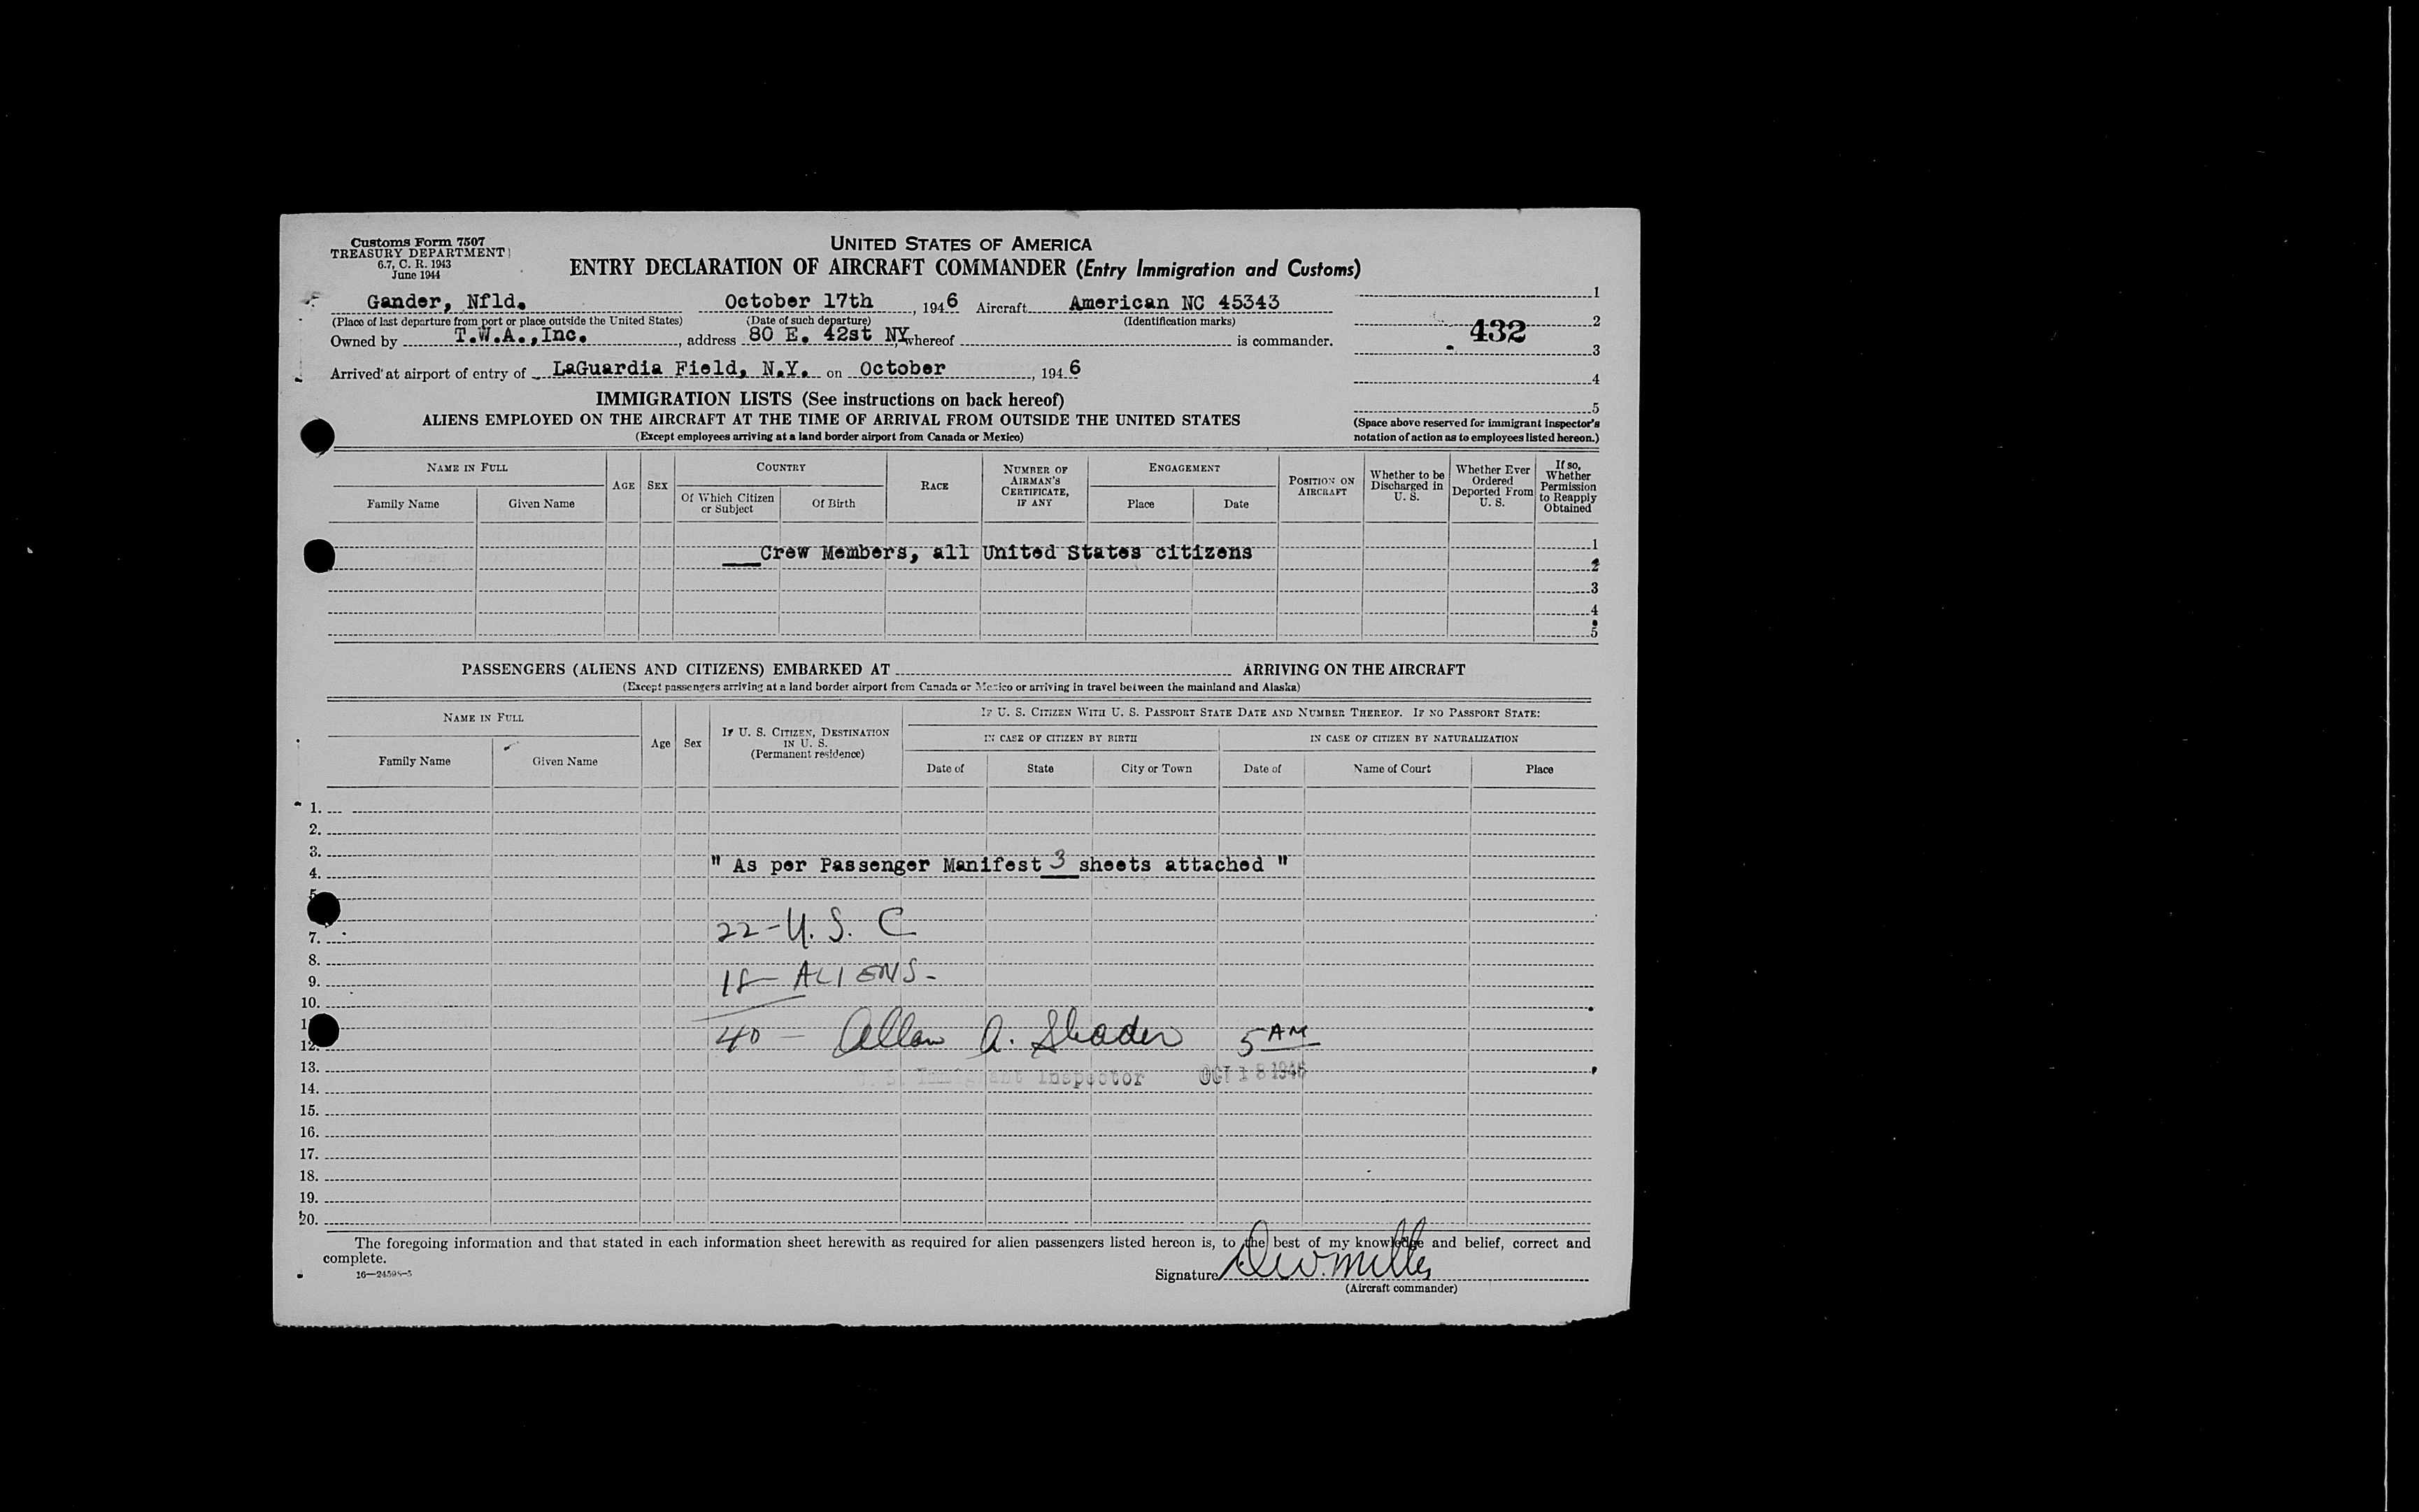 Customs Form 7507
TREASURY DEPARTMENT
6.7, C. R. 1943
June 1944
UNITED STATES OF AMERICA
ENTRY DECLARATION OF AIRCRAFT COMMANDER (Entry Immigration and Customs)
Gander, Nfld. October 17th, 1946 Aircraft American NC 45343
(Place of last departure from port or place outside the United States) (Date of such departure) (Identification marks)
Owned by T.W.A.,Inc., address 80 E. 42st NY, whereof is commander.
Arrived at airport of entry of LaGuardia Field, N.Y. on October, 1946
1
2
432
3
4
5
(Space above reserved for immigrant inspector's notation of action as to employees listed hereon.)
IMMIGRATION LISTS (See instructions on back hereof)
ALIENS EMPLOYED ON THE AIRCRAFT AT THE TIME OF ARRIVAL FROM OUTSIDE THE UNITED STATES
(Except employees arriving at a land border airport from Canada or Mexico)
NAME IN FULL AGE SEX COUNTRY RACE NUMBER OF AIRMAN'S CERTIFICATE, IF ANY ENGAGEMENT POSITION ON AIRCRAFT Whether to be Discharged in U. S. Whether Ever Ordered Deported From U. S. If so, Whether Permission to Reapply Obtained
Family Name Given Name Of Which Citizen or Subject Of Birth Place Date
1
Crew Members, all United States citizens
2
3
4
5
PASSENGERS (ALIENS AND CITIZENS) EMBARKED AT ARRIVING ON THE AIRCRAFT
(Except passengers arriving at a land border airport from Canada or Mexico or arriving in travel between the mainland and Alaska)
NAME IN FULL Age Sex IF U. S. CITIZEN, DESTINATION IN U. S. (Permanent residence) IF U. S. CITIZEN WITH U. S. PASSPORT STATE DATE AND NUMBER THEREOF. IF NO PASSPORT STATE:
IN CASE OF CITIZEN BY BIRTH IN CASE OF CITIZEN BY NATURALIZATION
Family Name Given Name Date of State City or Town Date of Name of Court Place
1.
2.
3.
" As per Passenger Manifest 3 sheets attached "
4.
5
22-U.S.C
7.
8.
18- ALIENS-
9.
10.
1
40 - Allan A. Shader 5 AM
12.
13.
U. S. Immigrant Inspector OCT 18 1946
14.
15.
16.
17.
18.
19.
20.
The foregoing information and that stated in each information sheet herewith as required for alien passengers listed hereon is, to the best of my knowledge and belief, correct and
complete.
16—24598-5
Signature D.W. Miller
(Aircraft commander)